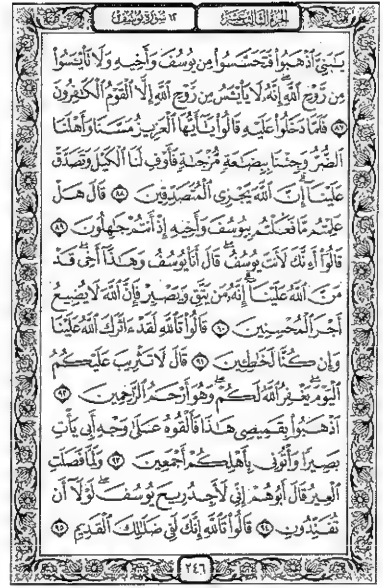 الجزء الثالث عشر ١٢ سورة يوسف
يَـٰبَنِىَّ ٱذْهَبُوا۟ فَتَحَسَّسُوا۟ مِن يُوسُفَ وَأَخِيهِ وَلَا تَا۟يْـَٔسُوا۟
مِن رَّوْحِ ٱللَّهِ إِنَّهُۥ لَا يَا۟يْـَٔسُ مِن رَّوْحِ ٱللَّهِ إِلَّا ٱلْقَوْمُ ٱلْكَـٰفِرُونَ
٨٧ فَلَمَّا دَخَلُوا۟ عَلَيْهِ قَالُوا۟ يَـٰٓأَيُّهَا ٱلْعَزِيزُ مَسَّنَا وَأَهْلَنَا
ٱلضُّرُّ وَجِئْنَا بِبِضَـٰعَةٍ مُّزْجَىٰةٍ فَأَوْفِ لَنَا ٱلْكَيْلَ وَتَصَدَّقْ
عَلَيْنَآ إِنَّ ٱللَّهَ يَجْزِى ٱلْمُتَصَدِّقِينَ ٨٨ قَالَ هَلْ
عَلِمْتُم مَّا فَعَلْتُم بِيُوسُفَ وَأَخِيهِ إِذْ أَنتُمْ جَـٰهِلُونَ ٨٩
قَالُوٓا۟ أَءِنَّكَ لَأَنتَ يُوسُفُ قَالَ أَنَا۠ يُوسُفُ وَهَـٰذَآ أَخِى قَدْ
مَنَّ ٱللَّهُ عَلَيْنَآ إِنَّهُۥ مَن يَتَّقِ وَيَصْبِرْ فَإِنَّ ٱللَّهَ لَا يُضِيعُ
أَجْرَ ٱلْمُحْسِنِينَ ٩٠ قَالُوا۟ تَٱللَّهِ لَقَدْ ءَاثَرَكَ ٱللَّهُ عَلَيْنَا
وَإِن كُنَّا لَخَـٰطِـِٔينَ ٩١ قَالَ لَا تَثْرِيبَ عَلَيْكُمُ
ٱلْيَوْمَ يَغْفِرُ ٱللَّهُ لَكُمْ وَهُوَ أَرْحَمُ ٱلرَّٰحِمِينَ ٩٢
ٱذْهَبُوا۟ بِقَمِيصِى هَـٰذَا فَأَلْقُوهُ عَلَىٰ وَجْهِ أَبِى يَأْتِ
بَصِيرًا وَأْتُونِى بِأَهْلِكُمْ أَجْمَعِينَ ٩٣ وَلَمَّا فَصَلَتِ
ٱلْعِيرُ قَالَ أَبُوهُمْ إِنِّى لَأَجِدُ رِيحَ يُوسُفَ لَوْلَآ أَن
تُفَنِّدُونِ ٩٤ قَالُوا۟ تَٱللَّهِ إِنَّكَ لَفِى ضَلَـٰلِكَ ٱلْقَدِيمِ ٩٥
٢٤٦